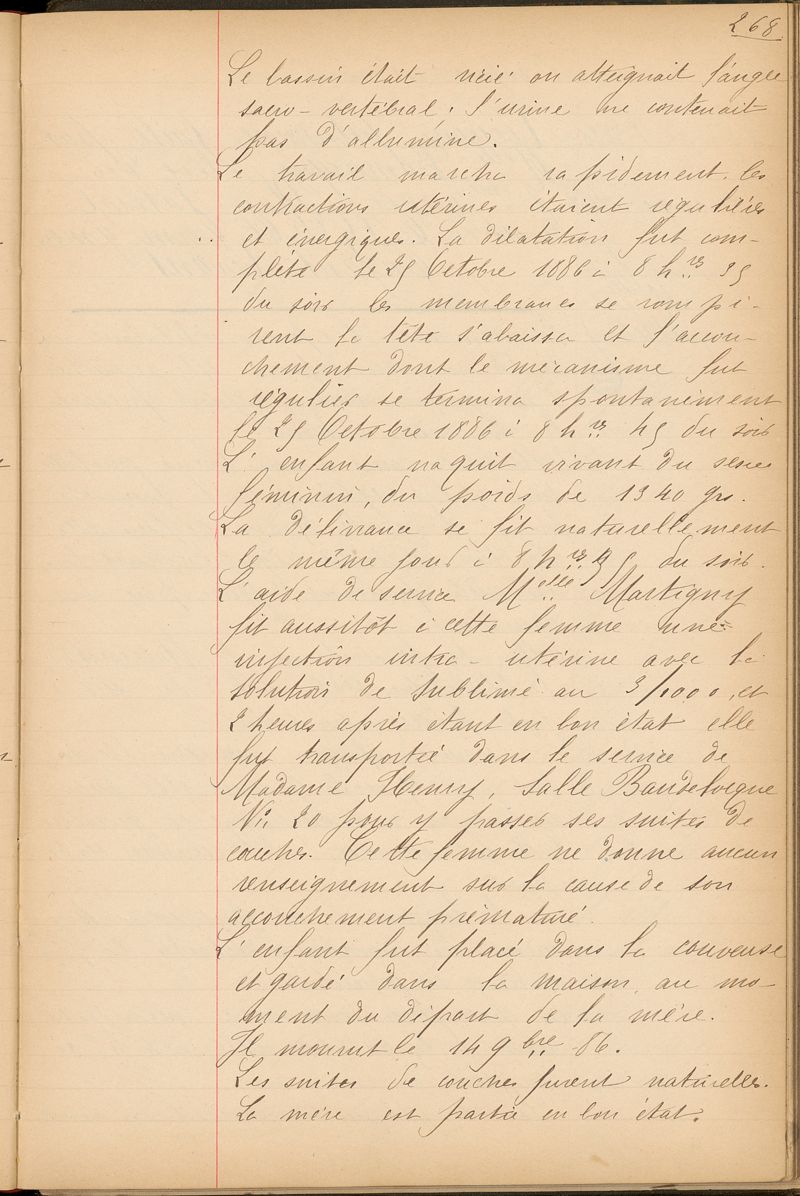 268
Le bassin était vicié on atteignait l'angle
sacro-vertébral; l'urine ne contenait
pas d'albumine.
Le travail marcha rapidement. les
contractions utérines étaient régulières
et énergiques. La dilatation fut com-
plète le 25 Octobre 1886 à 8 h res 35
du soir les membranes se rompi-
rent la tête s'abaissa et l'accou-
chement dont le mécanisme fut
régulier se termina spontanément
le 25 Octobre 1886 à 8 h res 45 du soir
L'enfant naquit vivant du sexe
féminin, du poids de 1340 grs.
La délivrance se fit naturellement
le même jour à 8 h res du soir.
L'aide de service Melle Martigny
fit aussitôt à cette femme une
injection intra-utérine avec la
solution de sublimé au 3/1000, et
2 heures après étant en bon état elle
fut transportée dans le service de
Madame Henry, Salle Baudelocque
No 20 pour y passer ses suites de
couches. Cette femme ne donne aucun
renseignement sur la cause de son
accouchement prématuré.
L'enfant fut placé dans la couveuse
et gardé dans la maison, au mo-
ment du départ de la mère.
Il mourut le 14 9bre 86.
Les suites de couches furent naturelles.
La mère est partie en bon état.